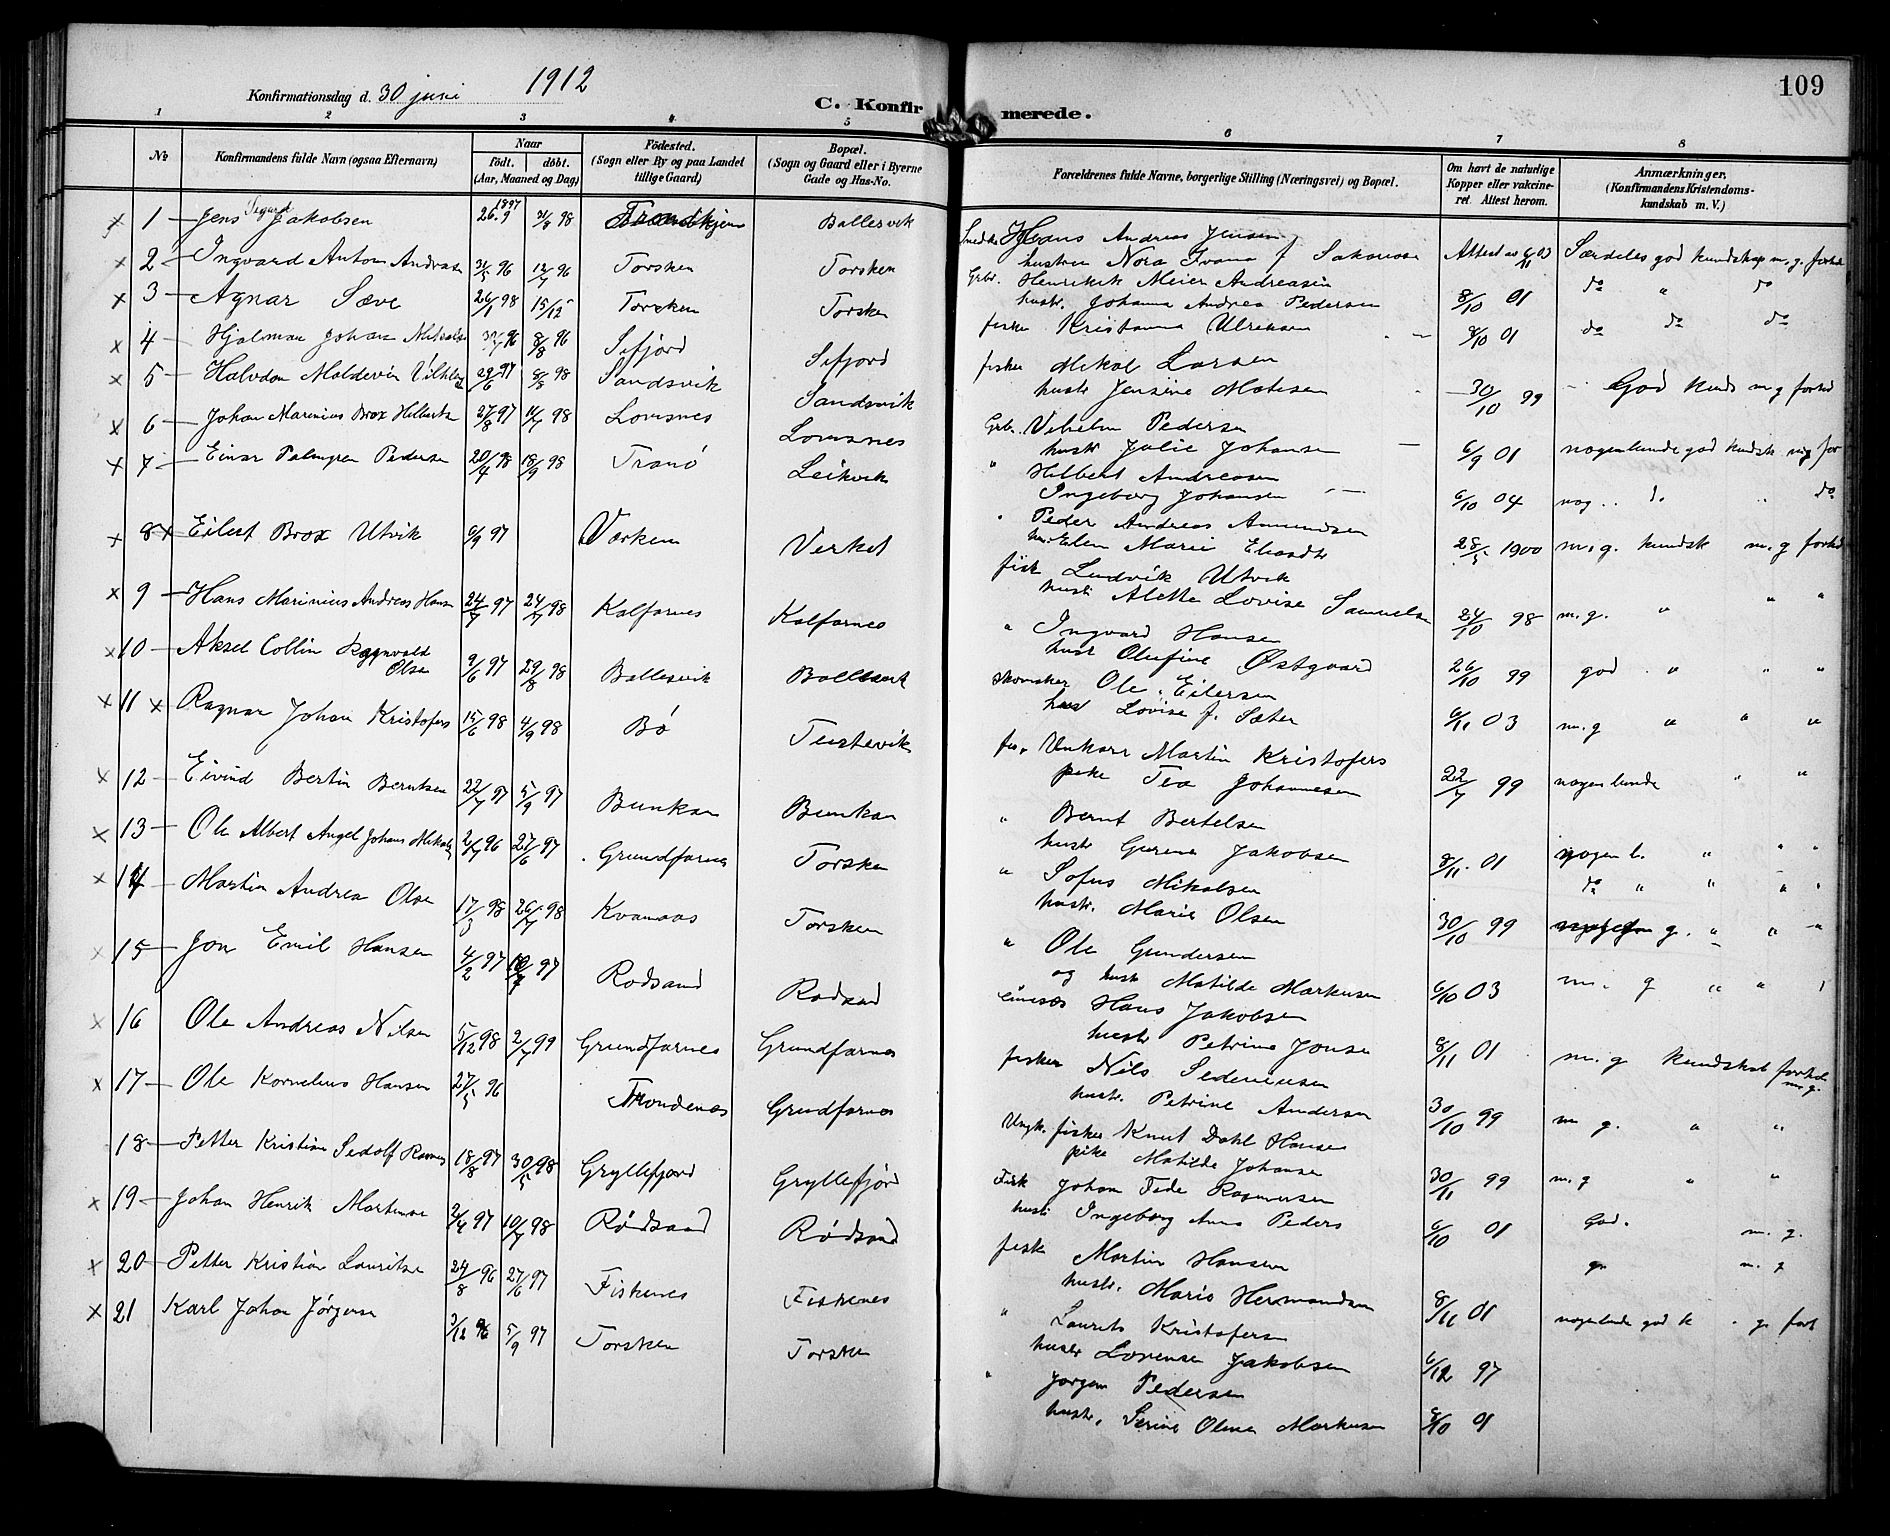 109
Konfirmationsdag d. 30 juni 1912
C. Konfirmerede.
1 2 3 4 5 6 7 8
No
Konfirmandens fulde Navn (ogsaa Efternavn)
Naar
födt. döbt.
(Aar, Maaned og Dag)
Födested.
(Sogn eller By og paa Landet
tillige Gaard)
Bopæl.
(Sogn og Gaard eller i Byerne
Gade og Hus-No.
Forældrenes fulde Navne, borgerlige Stilling (Næringsvei) og Bopæl.
Om havt de naturlige
Kopper eller vakcine-
ret. Attest herom.
Anmærkninger,
(Konfirmandens Kristendoms-
kundskab m. V.)
1 Jens Sigurd Jakobsen 1897 26/9 98 Trondhjem Ballesvik
Hans Andreas Jensen
hustru Nora Ivana f Jakobsen Attest 03 Særdeles god kundskap m. g. forhd
2 Ingvard Anton 31/5 96 12/7 96 Torsken Torsken
Grbr. Henrik Meier Andreasen
hustr. Johanna Andrea Pedersen 8/10 01 do " do
3 Agnar Sæve 26/1 98 15/12 Torsken Torsken
fisker Kristanna Ulriksen 8/10 01 do do do
4 Hjalmar Johan 96 8/8 96 Sifjord Sifjord
fisker Mikal Larsen
hustr Jensine Matisen 30/10 99 God kunds m g forhd
5 Halvdan Maldevin 29/6 97 8/8 98 Sandsvik Sandsvik
Grbr. Vilhelm Pedersen
hustr Julie Johansen 6/9 01 nogenlunde god kundsk m g for
6 Johan Marinius Brox Hilberts 27/8 97 11/7 98 Lomsnes Lomsnes
" Hilbert Andreasen
Ingeborg Johansen 6/10 04 nog .. do .. do
7 Einar Palmgren Pedersen 20/4 98 18/9 98 Tranö Leikvik
Peder Andreas Amundsen
hu. Elen Marie 28/5 1900 m. g. kundsk m. g forhd
8 x Eilert Brox Utvik 6/9 97 Værken Verket
fisk Ludvik Utvik
hustr Alette Lovise Samuelsen 24/10 98 m. g. " " "
9 Hans Marinius Andreas Hansen 24/7 97 24/7 98 Kalfarnes Kalfarnes
" Ingvard Hansen
hust Olufine Østgaard 26/10 99 god " " "
10 Aksel Collin Ragnvald Olsen 9/6 97 29/8 98 Ballesvik Ballesvik
skomaker Ole Eilersen
hust Lovise f. Sæter 6/11 03 m. g " " "
11 x Ragnar Johan Kristofers 15/6 98 4/9 98 Bö Teistevik
fis. Unkarr Martin Kristofers
pike Tea Johannesen 22/7 99 nogenlunde " "
12 Eivind Bertin Berntsen 22/7 97 5/9 97 Bunkan Bunkan
" Bernt Bertelsen
hustr Gurine Jakobsen 8/11 01 nogen l. " " "
13 Ole Albert Angel Johans 2/7 96 27/6 97 Grundfarnes Torsken
" Sofus Mikalsen do " " " "
hustr. Marie Olsen 30/10 99 g. " " "
14 Martin Andreas Olsen 17/3 98 26/7 98 Kvanaas Torsken
" Ole Gundersen
og hust Matilde Markusen 6/10 03 m. g " " "
15 Jon Emil Hansen 4/2 97 97 Rodsand Rodsand
Hans Jakobsen
hustr Petrine Jonsen 8/11 01 m. g kundskab forhd m. g.
16 Ole Andreas Nilsen 5/12 98 2/7 99 Grundfarnes Grundfarnes
fisker Nils
hustr. Petrine Andersen 30/10 99 m g. " "
17 Ole Kornelius Hansen 27/5 96 Trondenes Grundfarnes
Ungk. fisker Knut Dahl Hansen
pike Matilde Johansen 30/11 99 m. g " "
18 Petter Kristian Sedolf 18/8 97 30/5 98 Gryllefjord Gryllefjord
Fisk Johan Tede Rasmusen
hustr Ingeborg Anna Peders 6/10 01 God. m. g.
19 Johan Henrik Martinsen 2/4 97 10/7 98 Rödsand Rödsand
fisk Martin Hansen m. g
hustr. Marie Hermandsen 8/11 01 nogenlunde god k g forh
20 Petter Kristian Lauritsen 24/8 96 27/6 97 Fiskenes Fiskenes
" Laurits Kristofersen
hustr Lovense Jakobsen 6/12 97
21 Karl Johan Jørgensen 3/12 96 5/9 97 Torsken Torsken
" Jørgen Pedersen
hustr. Serine Olina Markusen 8/10 01